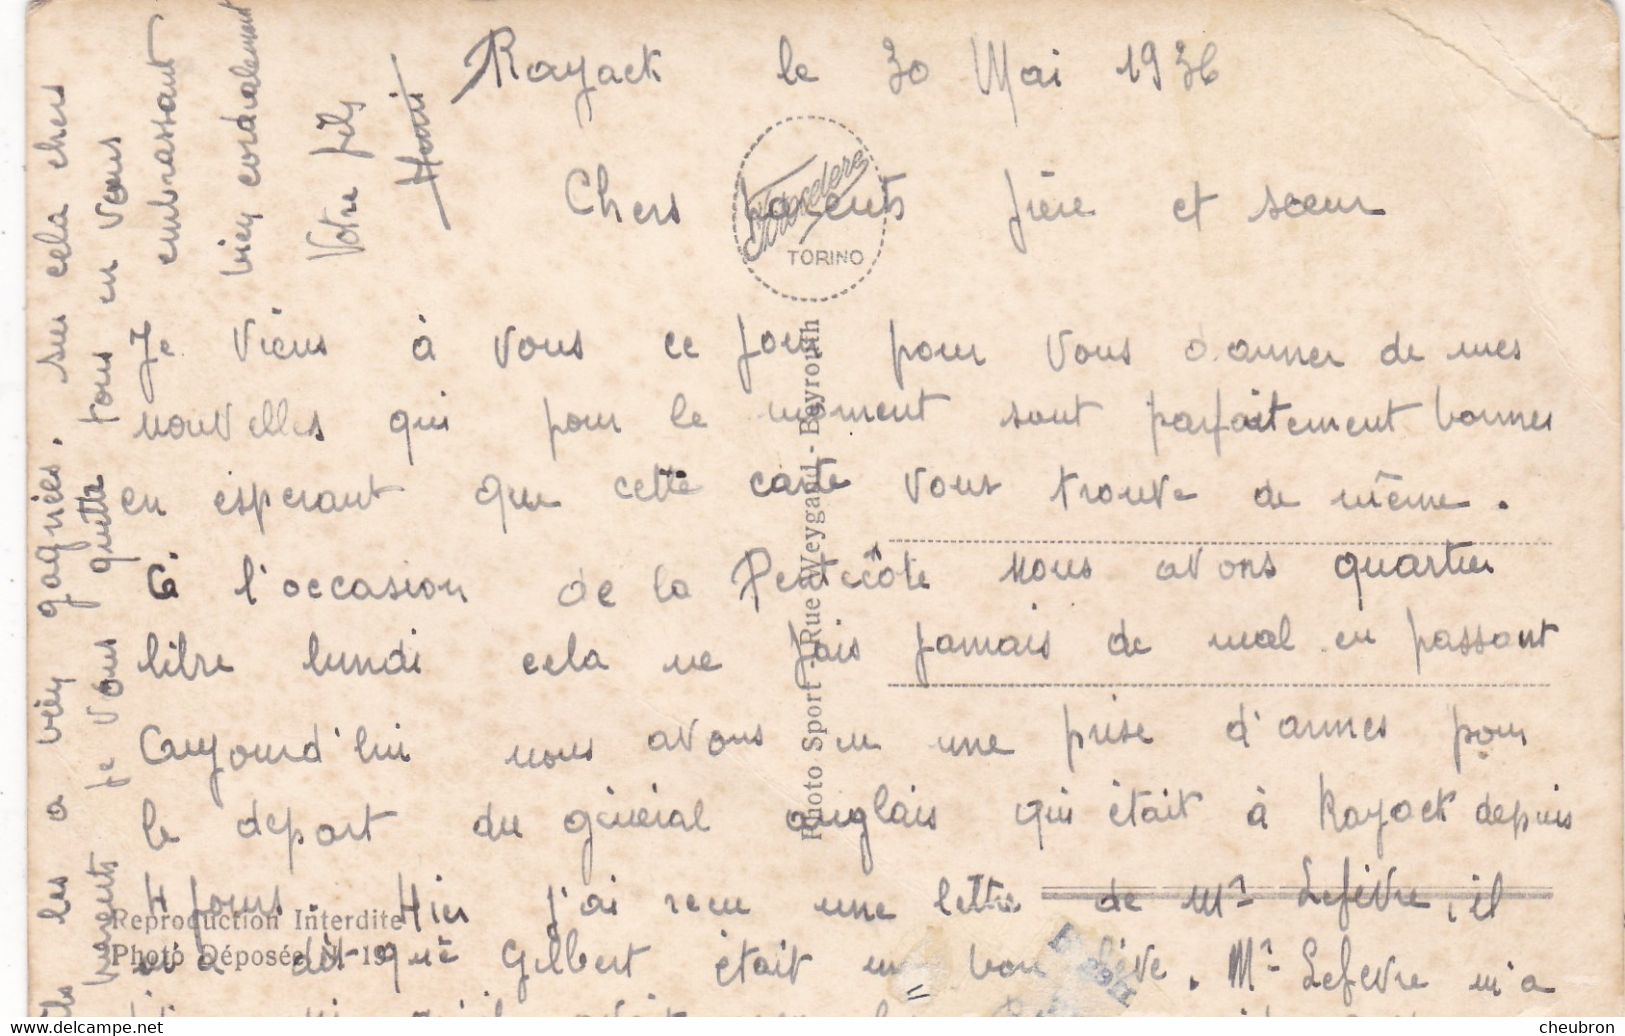 Rayack le 30 Mai 1936
Chers parents frère et sœur
Je viens à vous ce jour pour vous donner de mes
nouvelles qui pour le moment sont parfaitement bonnes
en espérant que cette carte vous trouve de même.
à l'occasion de la Pentecôte nous avons quartier
libre lundi cela ne fais jamais de mal en passant
Aujourd'hui nous avons eu une prise d'armes pour
le depart du général anglais qui était à Rayack depuis
4 jours. Hier j'ai recu une lettre de Mr Lefèvre, il
m'a dit que Gilbert était un bon élève. Mr Lefevre m'a
les a bien gagnées. sur cela chers
parents je vous quitte tous en vous
embrassant
bien cordialement
Votre fils
Henri
Fotocelere
TORINO
Photo Sport - Rue Weygand - Beyrouth
Reproduction Interdite
Photo Déposée N-19
cheubron.com